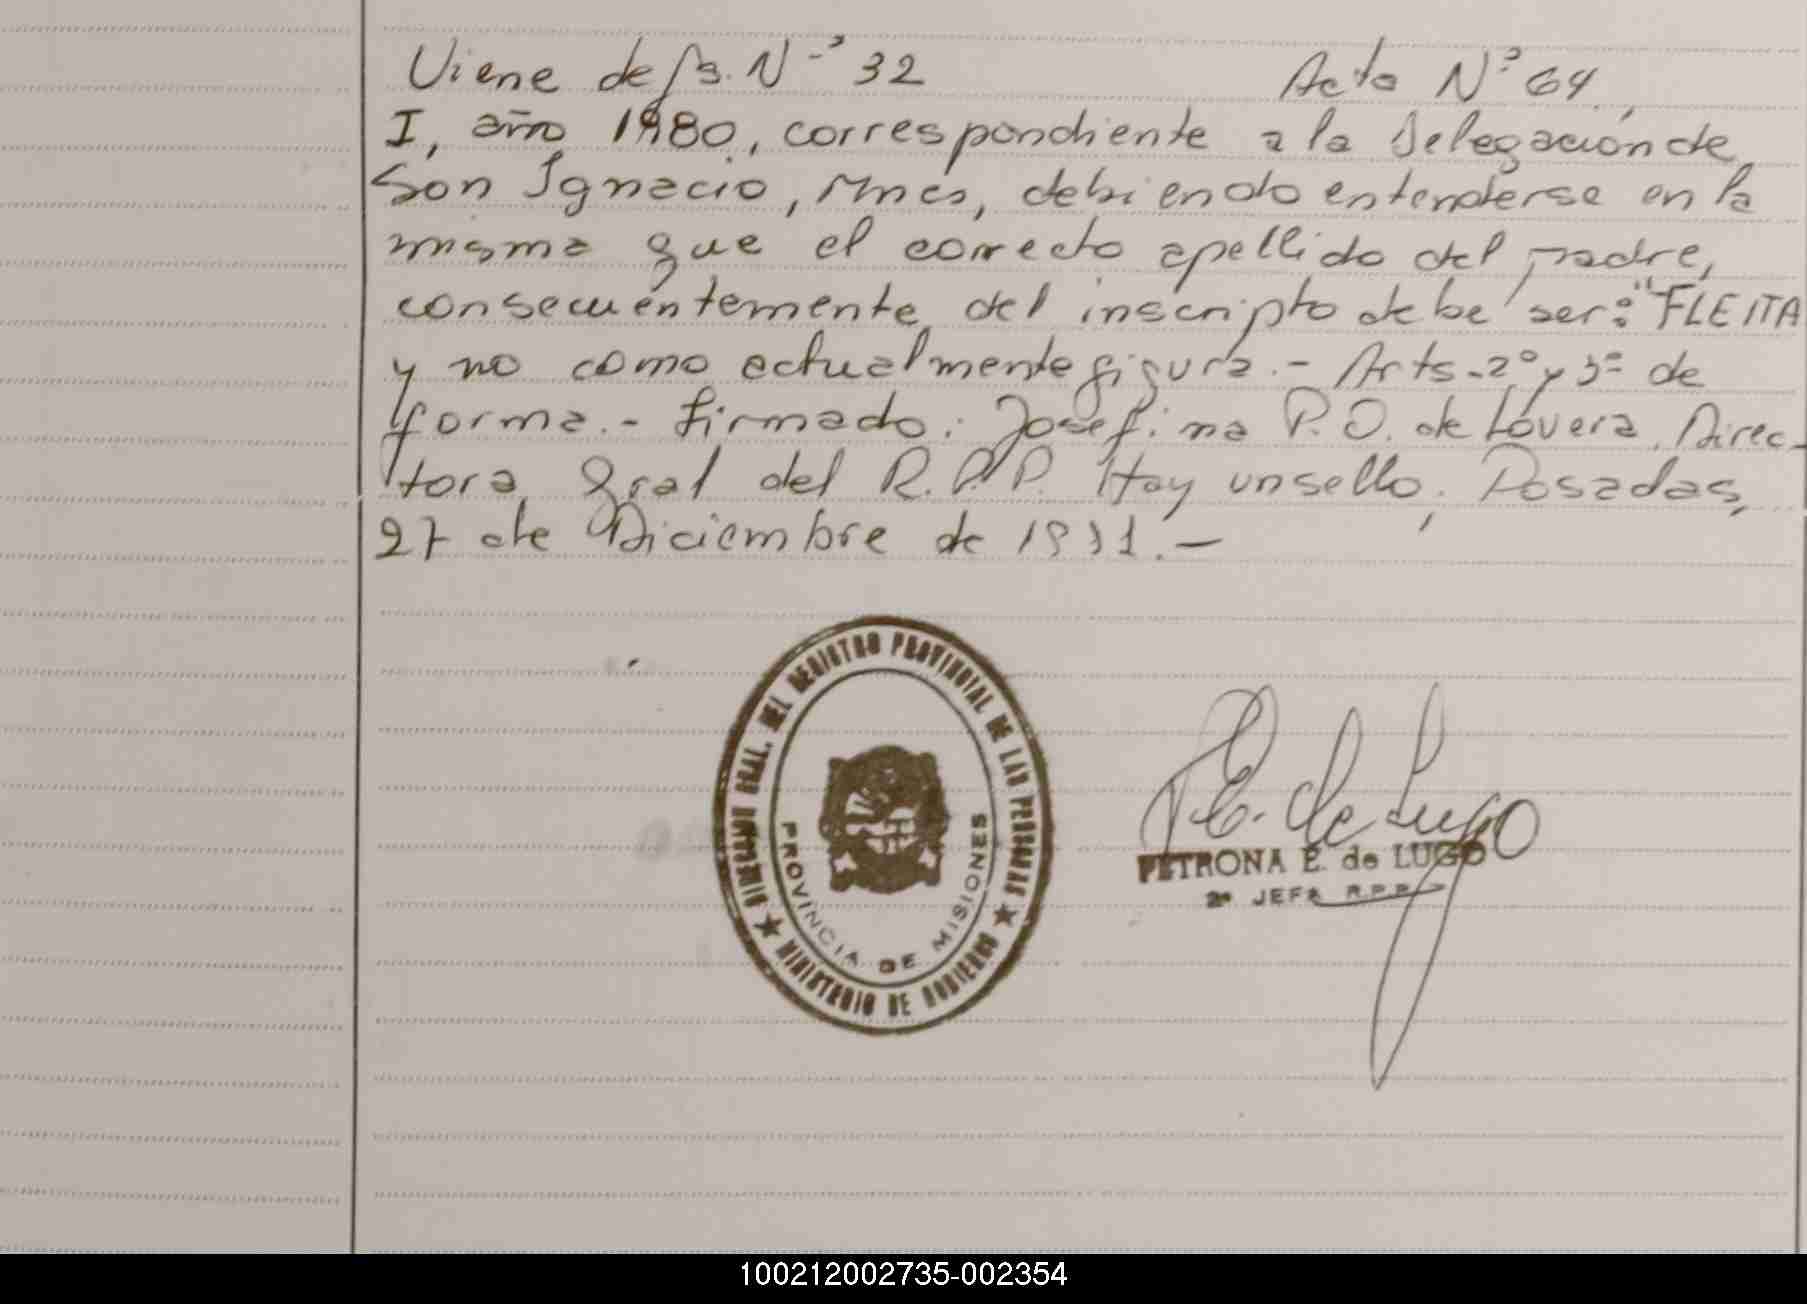 Viene de fs. Nº 32 Acta Nº 64
I, año 1980, correspondiente a la Delegación de
San Ignacio, Mnes, debiendo entenderse en la
misma que el correcto apellido del padre,
consecuentemente del inscripto debe ser: "FLEITA
y no como actualmente figura. - Arts. 2º y 3º de
forma. - Firmado: Josefina P. O. de Lovera, Direc-
tora Gral del R. P. P. Hay un sello. Posadas,
27 de Diciembre de 1991. -
DIRECCION GRAL. DEL REGISTRO PROVINCIAL DE LAS PERSONAS
★ MINISTERIO DE GOBIERNO ★
PROVINCIA DE MISIONES
P. E. de Lugo
PETRONA E. de LUGO
2ª JEFA R.P.P.
100212002735-002354